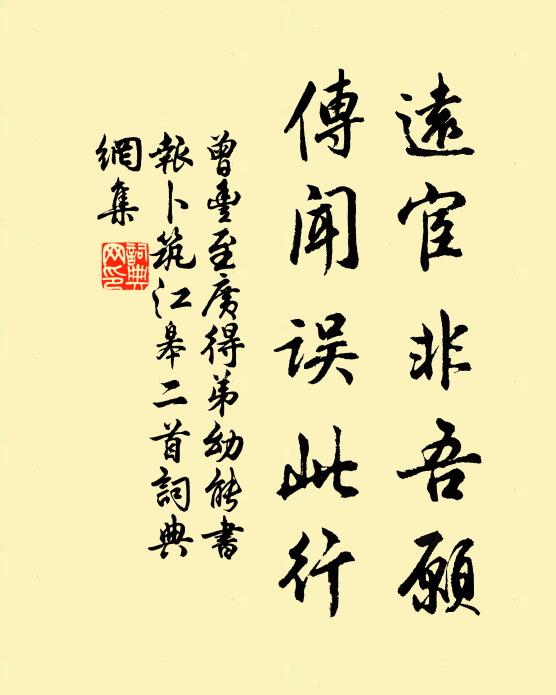 遠宦非吾願
傳聞误此行
曾豊至廣得弟幼能書
報卜筑江皋二首詞典
網集
詞典
网印